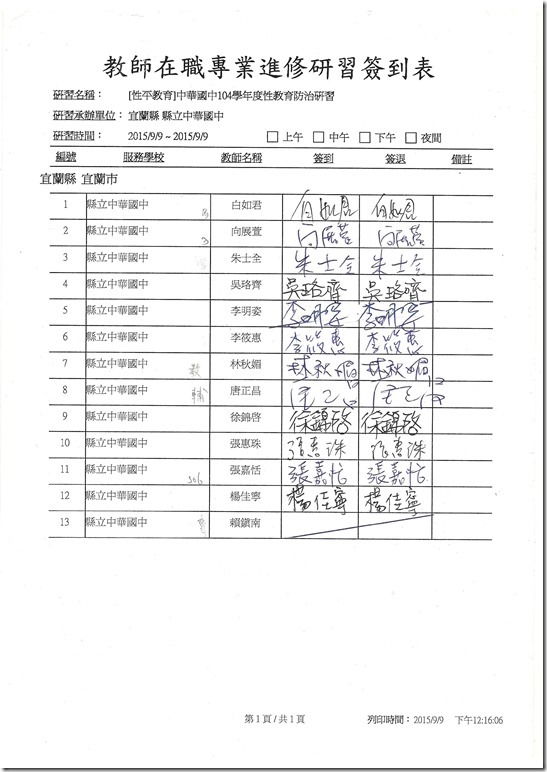 教師在職專業進修研習簽到表
研習名稱： [性平教育]中華國中104學年度性教育防治研習
研習承辦單位： 宜蘭縣 縣立中華國中
研習時間： 2015/9/9 ~ 2015/9/9 □ 上午 □ 中午 □ 下午 □ 夜間
編號 服務學校 教師名稱 簽到 簽退 備註
宜蘭縣 宜蘭市
1 縣立中華國中 白如君 白如君 白如君
2 縣立中華國中 向展萱 向展萱 向展萱
3 縣立中華國中 朱士全 朱士全 朱士全
4 縣立中華國中 吳珞齊 吳珞齊 吳珞齊
5 縣立中華國中 李明姿 李明姿 李明姿
6 縣立中華國中 李筱惠 李筱惠 李筱惠
7 縣立中華國中 教 林秋媚 林秋媚 林秋媚
8 縣立中華國中 輔 唐正昌
9 縣立中華國中 徐錦啓 徐錦啓 徐錦啓
10 縣立中華國中 張惠珠 張惠珠 張惠珠
11 縣立中華國中 306 張嘉恬 張嘉恬 張嘉恬
12 縣立中華國中 楊佳寧 楊佳寧 楊佳寧
13 縣立中華國中 賴鎭南
第 1 頁 / 共 1 頁 列印時間： 2015/9/9 下午12:16:06